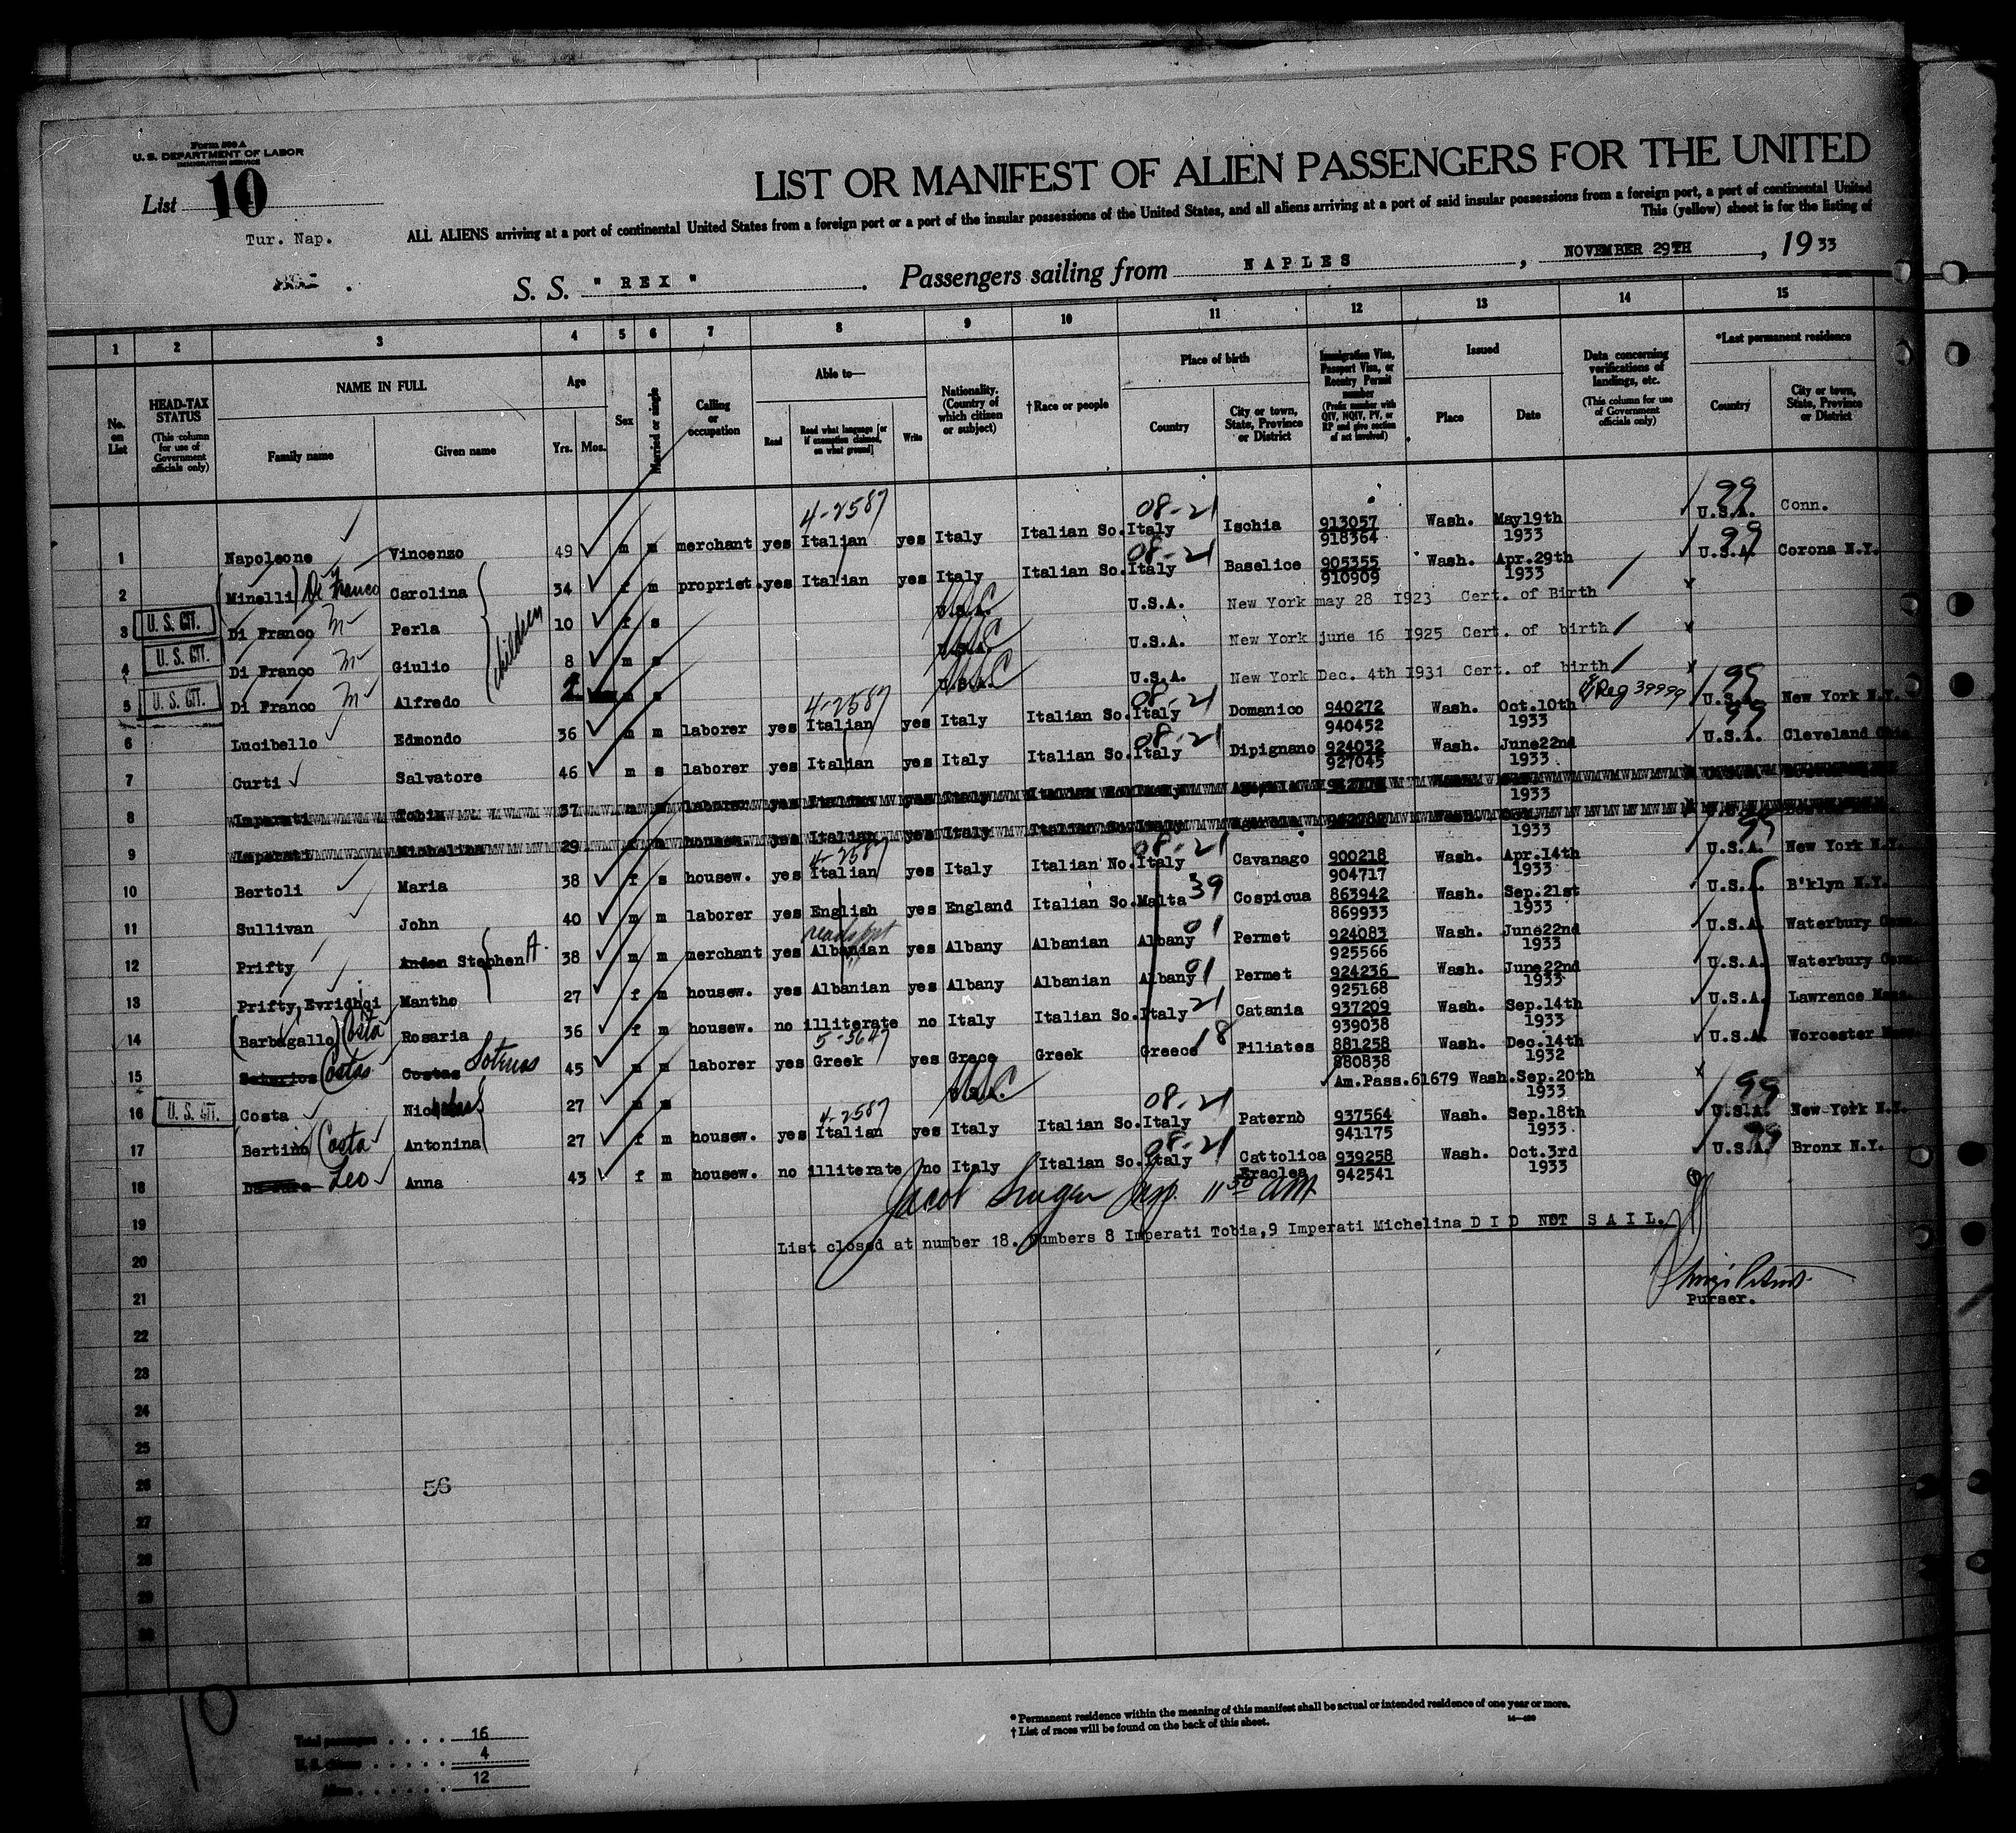 Form 500 A
U. S. DEPARTMENT OF LABOR
IMMIGRATION SERVICE
List 10
Tur. Nap.
LIST OR MANIFEST OF ALIEN PASSENGERS FOR THE UNITED
ALL ALIENS arriving at a port of continental United States from a foreign port or a port of the insular possessions of the United States, and all aliens arriving at a port of said insular possessions from a foreign port, a port of continental United
This (yellow) sheet is for the listing of
S. S. "REX" . Passengers sailing from NAPLES , NOVEMBER 29TH , 1933
1 2 3 4 5 6 7 8 9 10 11 12 13 14 15
No. on List
HEAD-TAX STATUS (This column for use of Government officials only)
NAME IN FULL
Family name Given name
Age Yrs. Mos.
Sex
Married or single
Calling or occupation
Able to— Read Read what language [or if exemption claimed, on what ground] Write
Nationality. (Country of which citizen or subject)
†Race or people
Place of birth Country City or town, State, Province or District
Immigration Visa, Passport Visa, or Reentry Permit number (Prefix number with QIV, NQIV, PV, or RP and give section of act involved)
Issued Place Date
Data concerning verifications of landings, etc. (This column for use of Government officials only)
*Last permanent residence Country City or town, State, Province or District
4-2587 08-21 99
1 Napoleone Vincenzo 49 m m merchant yes Italian yes Italy Italian So. Italy Ischia 913057 918364 Wash. May19th 1933 U.S.A. Conn.
08-21 99
2 (Minelli) Di Franco Carolina 34 f m propriet. yes Italian yes Italy Italian So. Italy Baselice 905355 910909 Wash. Apr.29th 1933 U.S.A. Corona N.Y.
children
3 U. S. CIT. Di Franco Perla 10 f s U.S.A. USC U.S.A. New York may 28 1923 Cert. of Birth
4 U. S. CIT. Di Franco Giulio 8 m s U.S.A. USC U.S.A. New York june 16 1925 Cert. of birth
5 U. S. CIT. Di Franco Alfredo 1 m s U.S.A. USC U.S.A. New York Dec. 4th 1931 Cert. of birth
4-2587 08-21 Reg 39999 99
6 Lucibello Edmondo 36 m m laborer yes Italian yes Italy Italian So. Italy Domanico 940272 940452 Wash. Oct.10th 1933 U.S.A. New York N.Y.
08-21 99
7 Curti Salvatore 46 m s laborer yes Italian yes Italy Italian So. Italy Dipignano 924032 927045 Wash. June22nd 1933 U.S.A. Cleveland Ohio
8 Imperati Tobia 37 m m laborer yes Italian yes Italy Italian So. Italy 1933
9 Imperati Michelina 29 housew. yes Italian yes Italy Italian So. Italy 1933
4-2587 08-21 99
10 Bertoli Maria 38 f s housew. yes Italian yes Italy Italian No. Italy Cavanago 900218 904717 Wash. Apr.14th 1933 U.S.A. New York N.Y.
11 Sullivan John 40 m m laborer yes English yes England Italian So. Malta 39 Cospicua 863942 869933 Wash. Sep.21st 1933 U.S.A. B'klyn N.Y.
12 Prifty Anden Stephen A. 38 m m merchant yes Albanian yes Albany Albanian Albany 01 Permet 924083 925566 Wash. June22nd 1933 U.S.A. Waterbury Conn.
13 Prifty, Evridhqi Mantho 27 f m housew. yes Albanian yes Albany Albanian Albany 01 Permet 924236 925168 Wash. June22nd 1933 U.S.A. Waterbury Conn.
14 (Barbagallo) Costa Rosaria 36 f m housew. no illiterate no Italy Italian So. Italy 21 Catania 937209 939038 Wash. Sep.14th 1933 U.S.A. Lawrence Mass.
5-3647
15 Costas Costas Sotirios 45 m m laborer yes Greek yes Grece Greek Greece 18 Filiates 881258 880838 Wash. Dec.14th 1932 U.S.A. Worcester Mass.
16 U. S. CIT. Costa Nicholas 27 m m U.S.A. USC Am.Pass.61679 Wash.Sep.20th 1933
4-2587 08-21 99
17 (Bertino) Costa Antonina 27 f m housew. yes Italian yes Italy Italian So. Italy Paternò 937564 941175 Wash. Sep.18th 1933 U.S.A. New York N.Y.
08-21 99
18 Leo Anna 43 f m housew. no illiterate no Italy Italian So. Italy Cattolica Eraclea 939258 942541 Wash. Oct.3rd 1933 U.S.A. Bronx N.Y.
Jacob Insp. 11 30 AM
19
List closed at number 18. Numbers 8 Imperati Tobia,9 Imperati Michelina DID NOT SAIL.
20
21
Purser.
22
23
24
25
26
56
27
28
29
30
10
Total passengers 16
U. S. citizens 4
Aliens 12
* Permanent residence within the meaning of this manifest shall be actual or intended residence of one year or more.
† List of races will be found on the back of this sheet.